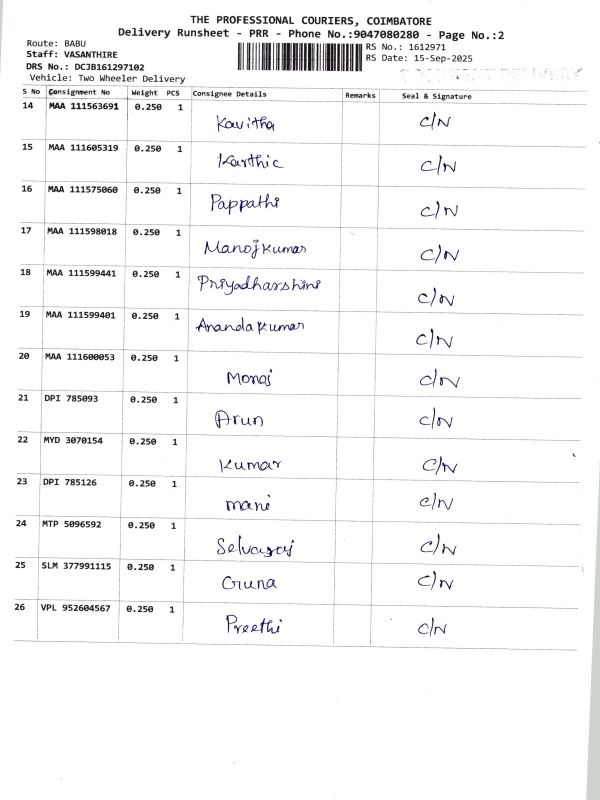 THE PROFESSIONAL COURIERS, COIMBATORE
Delivery Runsheet - PRR - Phone No.:9047080280 - Page No.:2
Route: BABU
Staff: VASANTHIRE
DRS No.: DCJB161297102
Vehicle: Two Wheeler Delivery
RS No.: 1612971
RS Date: 15-Sep-2025
S No Consignment No Weight PCS Consignee Details Remarks Seal & Signature
14 MAA 111563691 0.250 1 Kavitha C/N
15 MAA 111605319 0.250 1 Karthic C/N
16 MAA 111575060 0.250 1 Pappathi C/N
17 MAA 111598018 0.250 1 Manojkumar C/N
18 MAA 111599441 0.250 1 Priyadharshini C/N
19 MAA 111599401 0.250 1 Anandakumar C/N
20 MAA 111600053 0.250 1 Monaj C/N
21 DPI 785093 0.250 1 Arun C/N
22 MYD 3070154 0.250 1 Kumar C/N
23 DPI 785126 0.250 1 mani C/N
24 MTP 5096592 0.250 1 Selvaraj C/N
25 SLM 377991115 0.250 1 Guna C/N
26 VPL 952604567 0.250 1 Preethi C/N